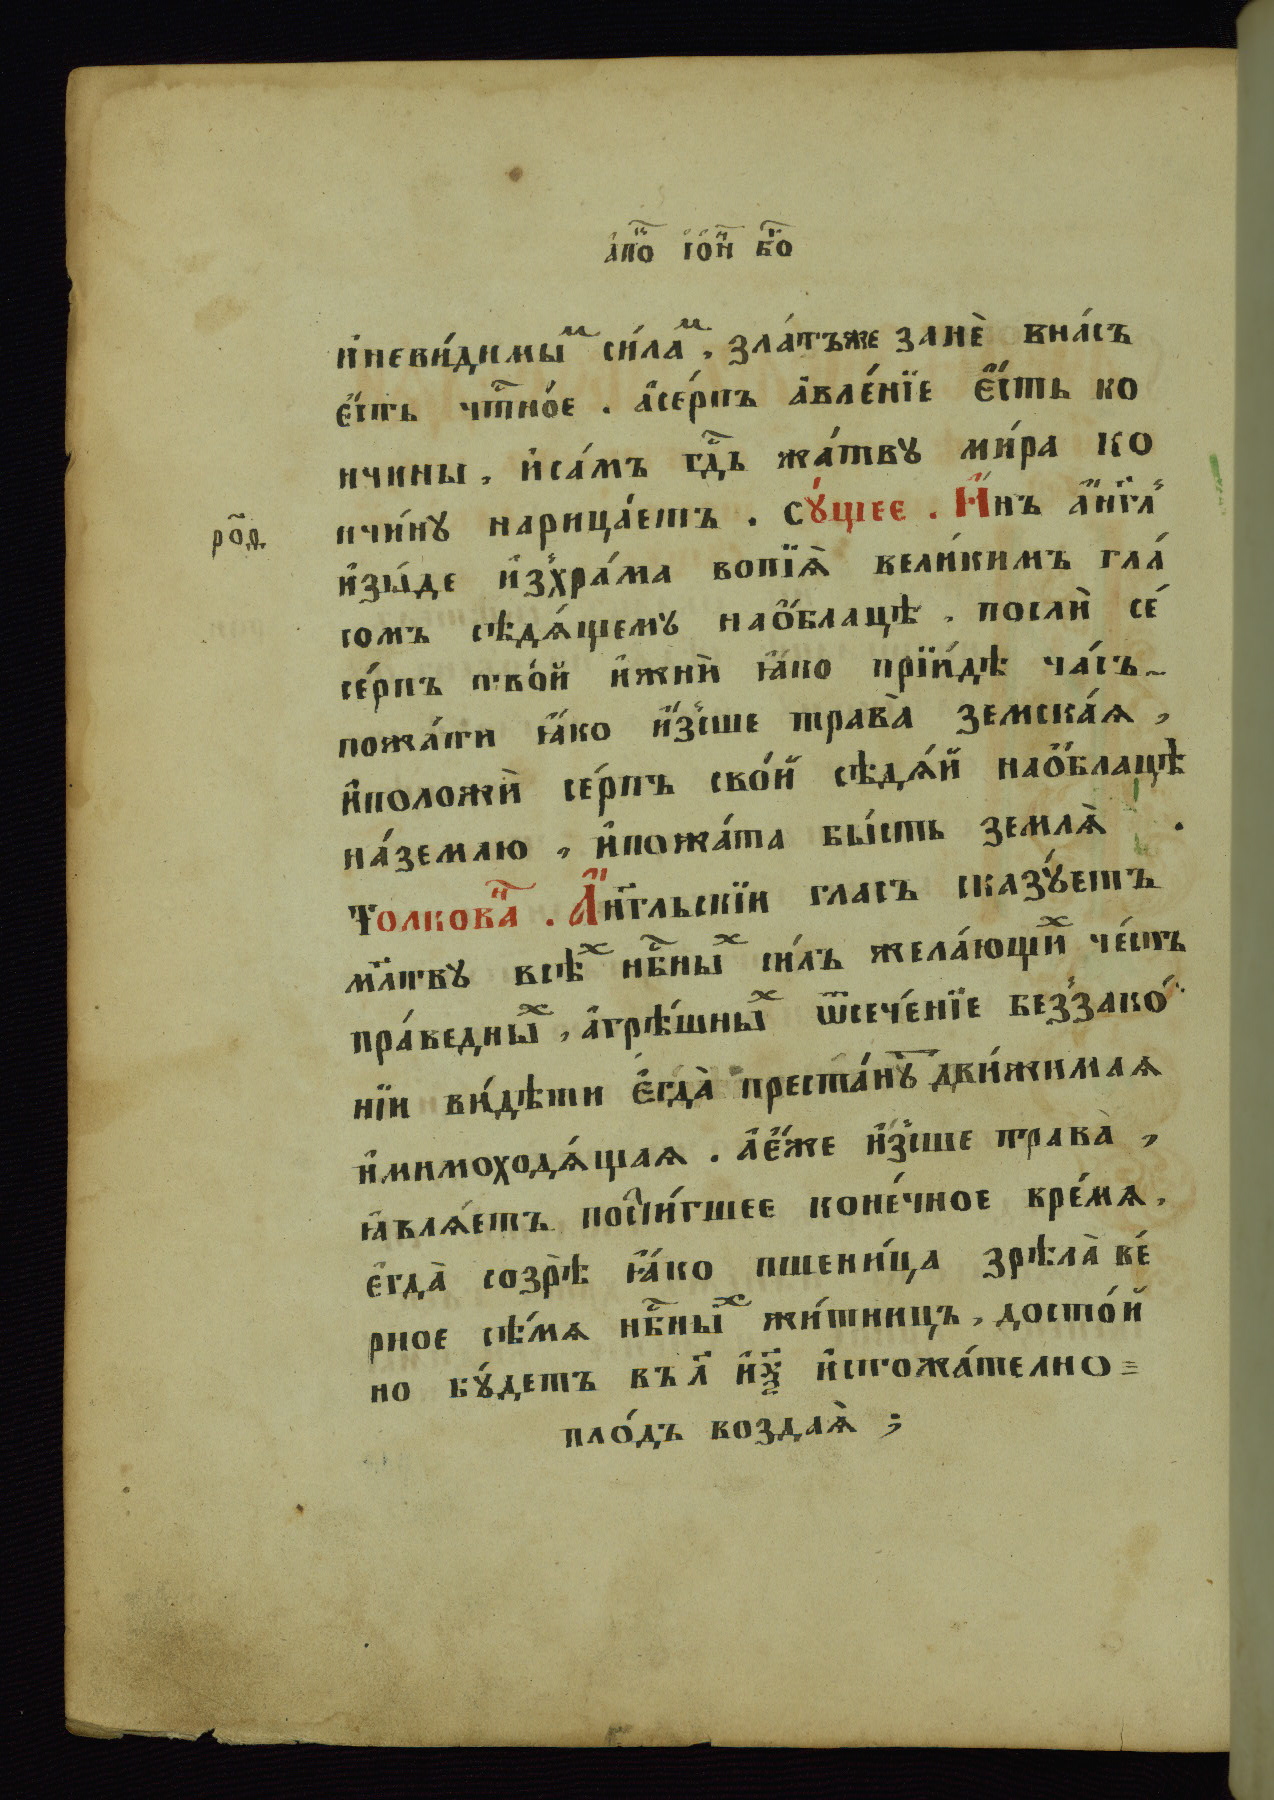 а҆пⷭ҇о і҆ѡ҆́н бг҃о
и҆неви́димыⷨ си́лаⷨ, зла́тъже занѐ внáсъ
є҆́сть чⷭ҇тно́е . а҆се́рпъ ꙗ҆вле́нїе є҆́сть ко
нчины, и҆са́мъ гдⷭ҇ь жа́тву ми́ра ко
нчи́ну нарица́етъ . сꙋ́щее . И҆́нъ а҆́нг҃лъ
рѯ҃д
и҆зы́де и҆зхра́ма вопїѧ̀ вели́кимъ гла́
сомъ сѣдѧ́щему нао҆́блацѣ . послѝ се́
се́рпъ тво́й и҆жнѝ ꙗ҆́ко прїи́дѣ ча́съ
пожа́ти ꙗ҆́ко и҆́зсше трава̀ земска́ѧ,
и҆положѝ се́рпъ сво́й сѣдѧ́й нао҆́блацѣ
на́землю, и҆пожа́та бы́сть землѧ̀ .
Толковаⷩ҇ . А҆́нг҃льскїи гласъ сказꙋ́етъ
мл҃тву всѣⷯ нбⷭ҇ныⷯ си́лъ жела́ющиⷯ че́сть
пра́ведныⷯ, а҆грѣ́шныⷯ ѿсече́нїе беззако́
нїи ви́дѣти є҆гда̀ преста́нꙋⷮ дви́жимаѧ
и҆мимоходѧ́щаѧ . а҆є҆́же и҆́зсше трава̀,
ꙗ҆влѧ́етъ пости́гшее коне́чное вре́мѧ.
є҆гда̀ созрѣ̀ ꙗ҆́ко пшени́ца зрѣла̀ ве́
рное сѣ́мѧ нбⷭ҇ныⷯ жи́тницъ, досто́й
но бꙋ́детъ въ л҃ и҆ѯ҃ и҆стожа́телно
пло́дъ воздаѧ̀ ;